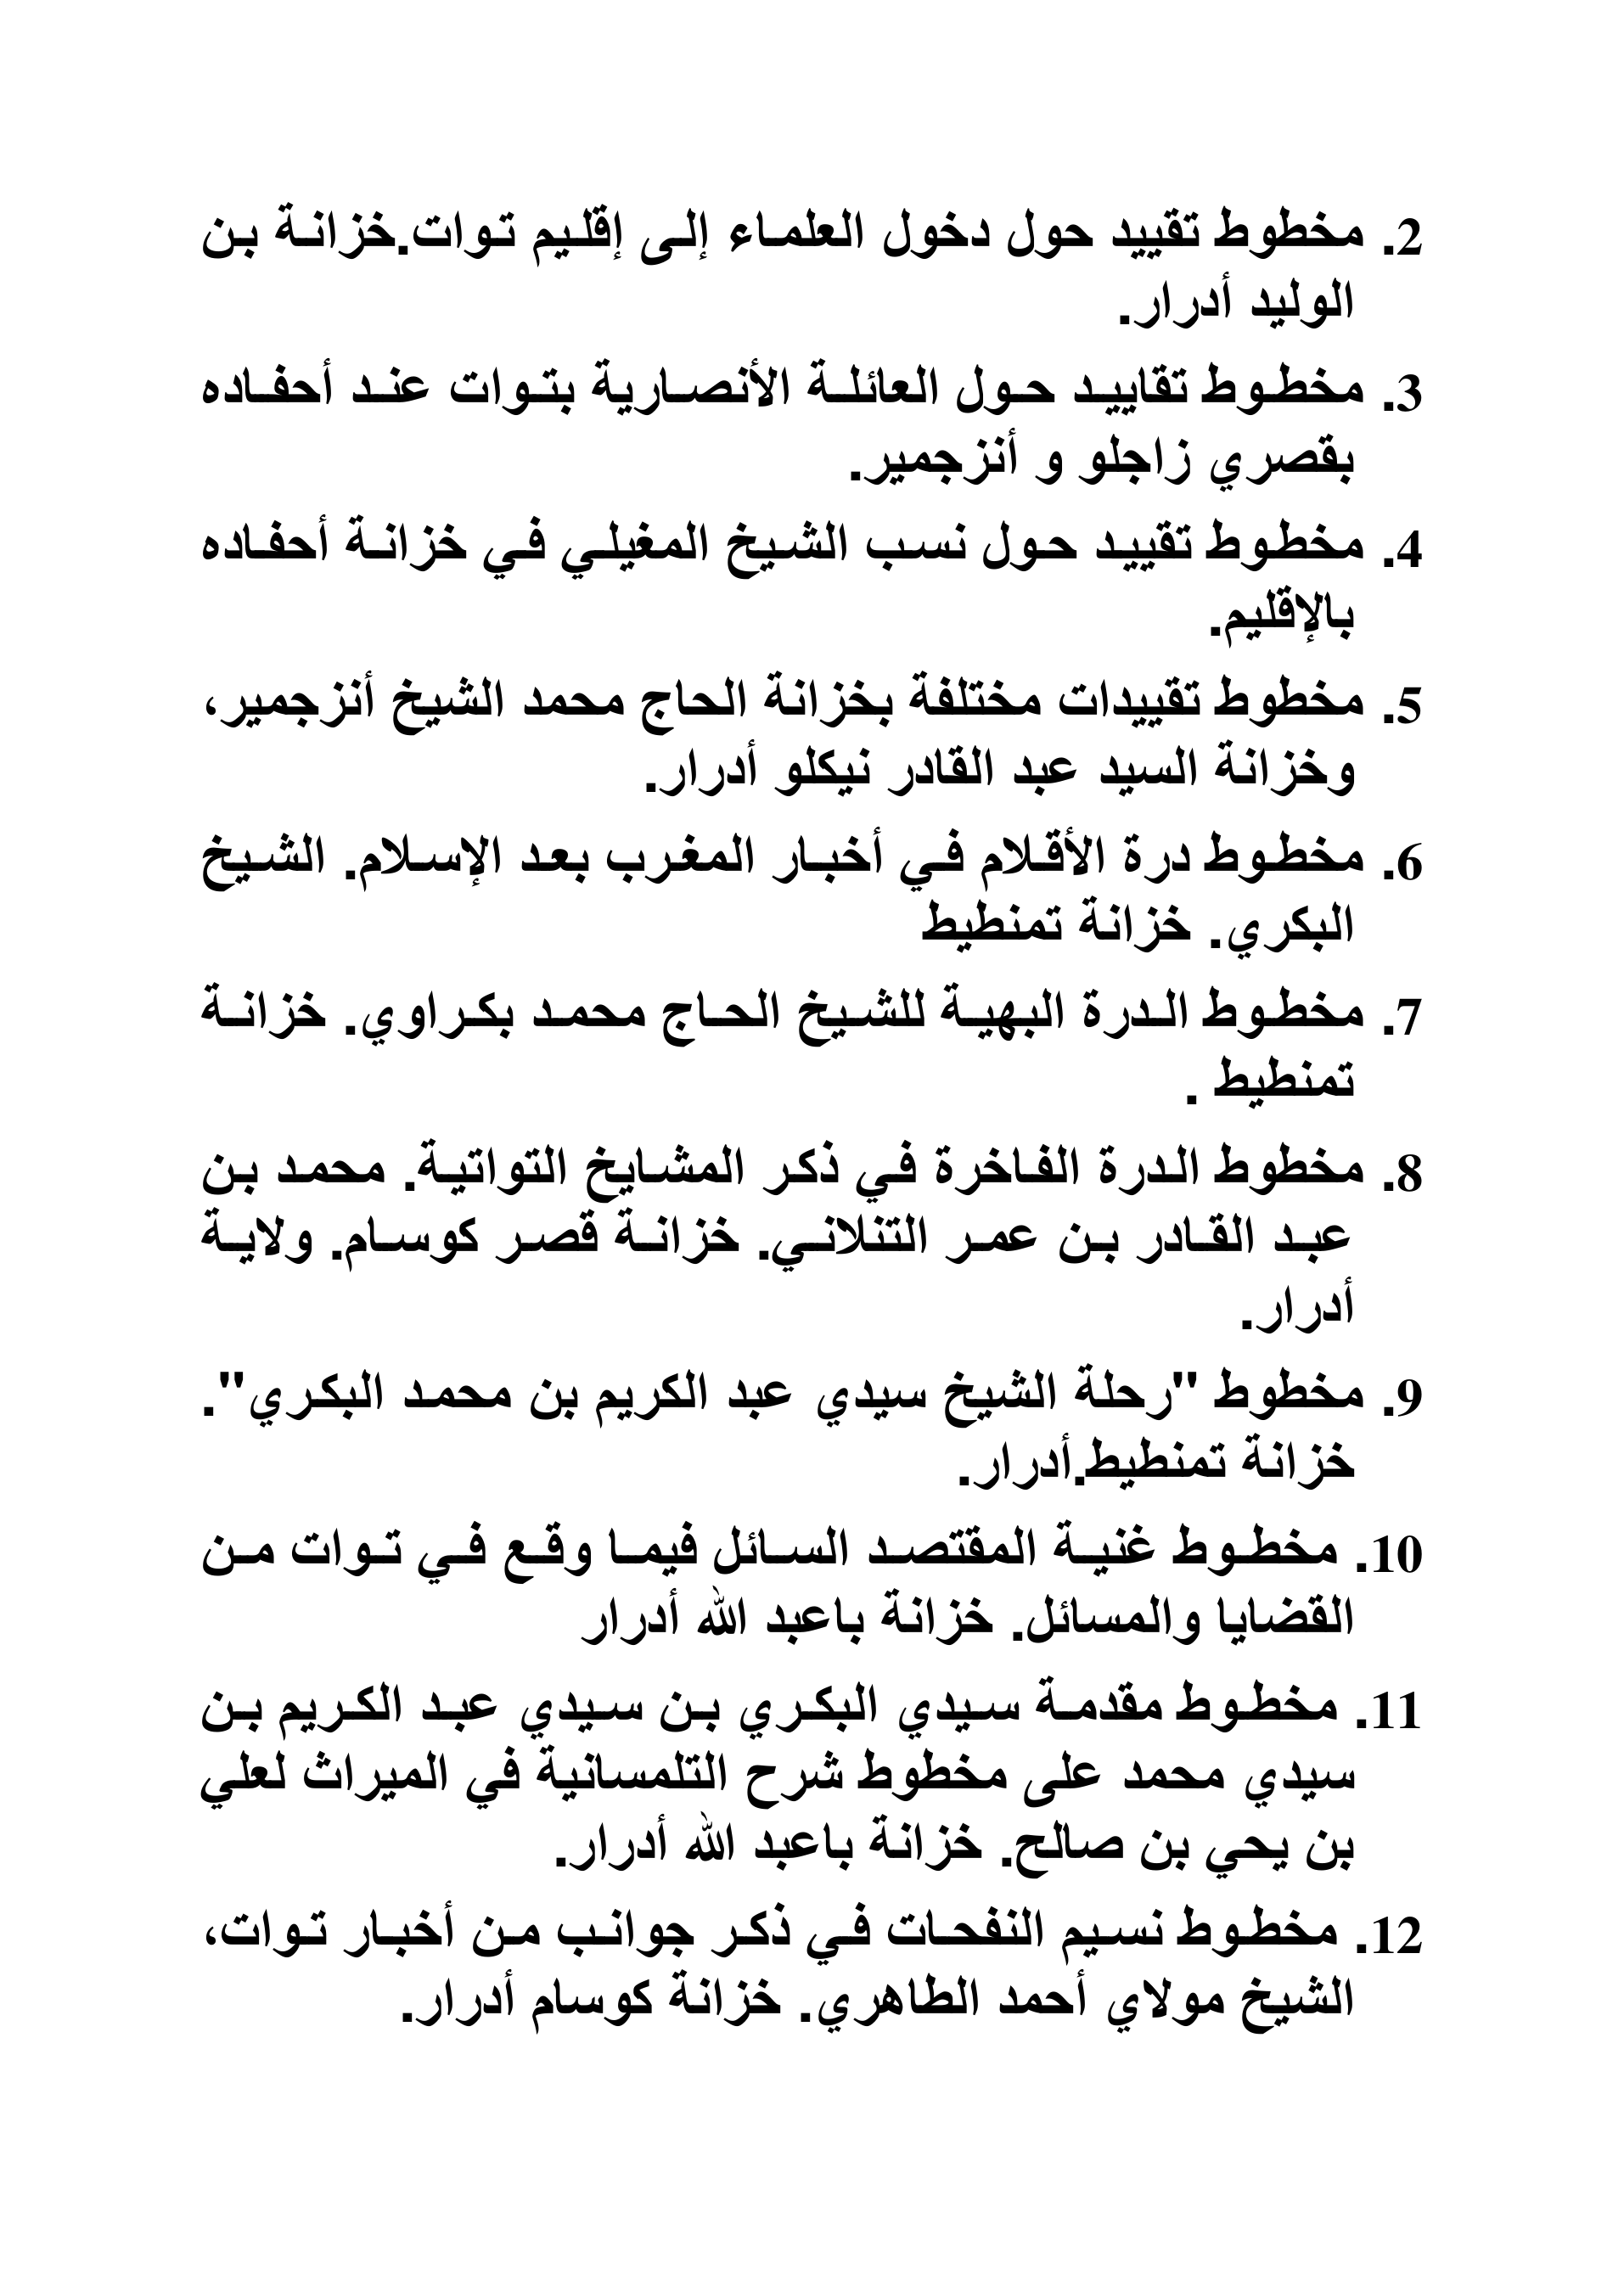 2. مخطوط تقييد حول دخول العلماء إلى إقليم توات.خزانة بن
الوليد أدرار.
3. مخطوط تقاييد حول العائلة الأنصارية بتوات عند أحفاده
بقصري زاجلو و أنزجمير.
4. مخطوط تقييد حول نسب الشيخ المغيلي في خزانة أحفاده
بالإقليم.
5. مخطوط تقييدات مختلفة بخزانة الحاج محمد الشيخ أنزجمير،
وخزانة السيد عبد القادر نيكلو أدرار.
6. مخطوط درة الأقلام في أخبار المغرب بعد الإسلام. الشيخ
البكري. خزانة تمنطيط
7. مخطوط الدرة البهية للشيخ الحاج محمد بكراوي. خزانة
تمنطيط .
8. مخطوط الدرة الفاخرة في ذكر المشايخ التواتية. محمد بن
عبد القادر بن عمر التنلاني. خزانة قصر كوسام. ولاية
أدرار.
9. مخطوط "رحلة الشيخ سيدي عبد الكريم بن محمد البكري".
خزانة تمنطيط.أدرار.
10. مخطوط غنية المقتصد السائل فيما وقع في توات من
القضايا والمسائل. خزانة باعبد الله أدرار
11. مخطوط مقدمة سيدي البكري بن سيدي عبد الكريم بن
سيدي محمد على مخطوط شرح التلمسانية في الميراث لعلي
بن يحي بن صالح. خزانة باعبد الله أدرار.
12. مخطوط نسيم النفحات في ذكر جوانب من أخبار توات،
الشيخ مولاي أحمد الطاهري. خزانة كوسام أدرار.